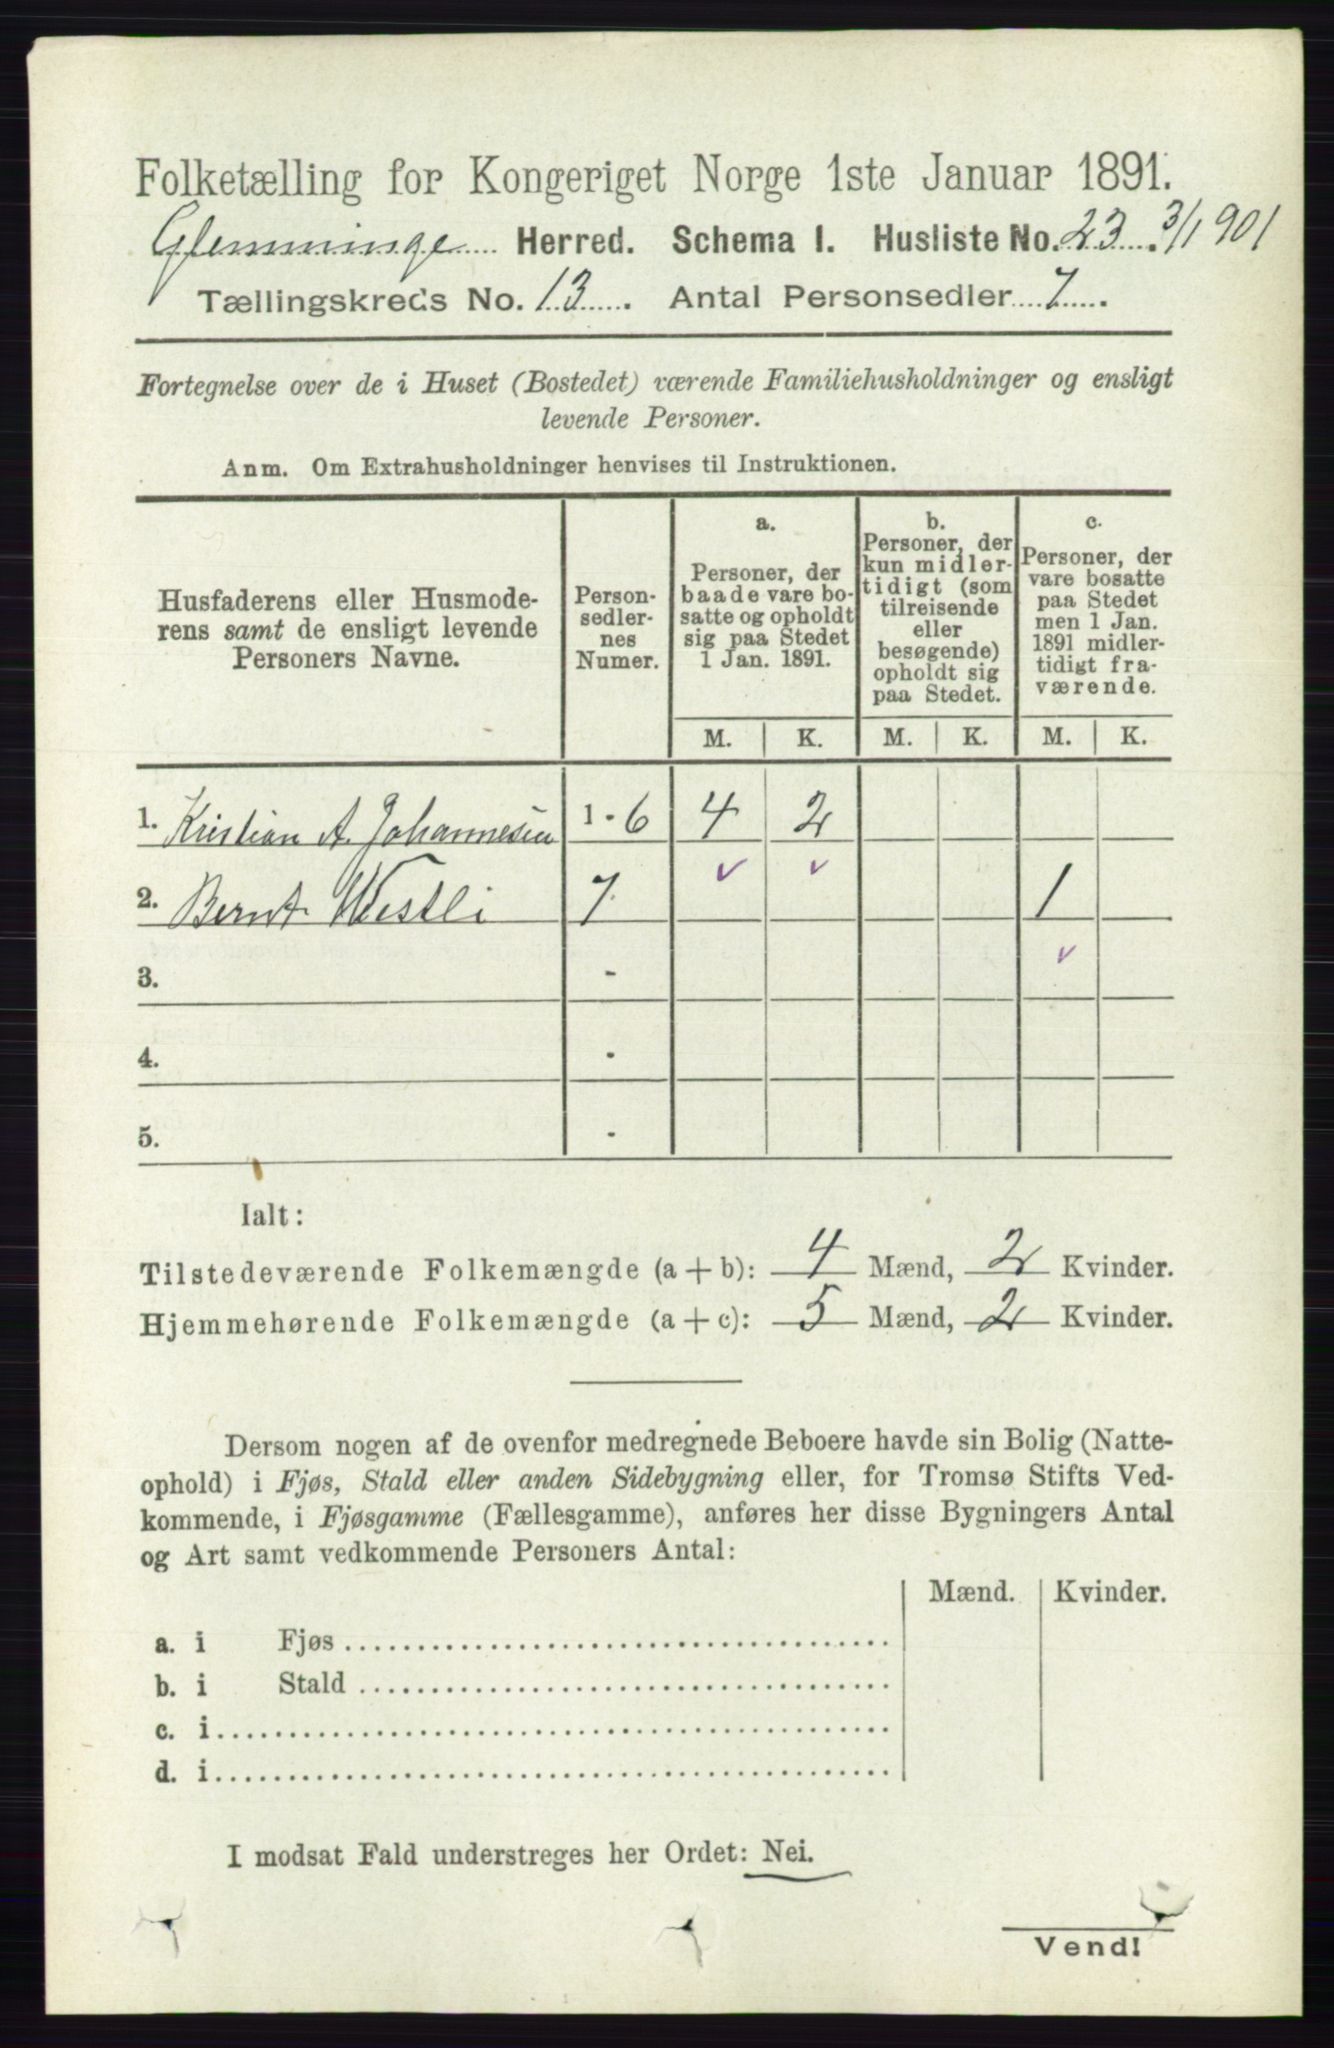 Folketælling for Kongeriget Norge 1ste Januar 1891.
Glemminge Herred. Schema I. Husliste No. 23 3/1 901
Tællingskreds No. 13. Antal Personsedler 7.
Fortegnelse over de i Huset (Bostedet) værende Familiehusholdninger og ensligt
levende Personer.
Anm. Om Extrahusholdninger henvises til Instruktionen.
Husfaderens eller Husmode-
rens samt de ensligt levende
Personers Navne.
Person-
sedler-
nes
Numer.
a.
Personer, der
baade vare bo-
satte og opholdt
sig paa Stedet
1 Jan. 1891.
b.
Personer, der
kun midler-
tidigt (som
tilreisende
eller
besøgende)
opholdt sig
paa Stedet.
c.
Personer, der
vare bosatte
paa Stedet
men 1 Jan.
1891 midler-
tidigt fra-
værende.
M. K. M. K. M. K.
1. Kristian A. Johannesen 1 - 6 4 2
2. Bernt Westli 7 1
3. -
4. -
5. -
Ialt:
Tilstedeværende Folkemængde (a + b): 4 Mænd, 2 Kvinder.
Hjemmehørende Folkemængde (a + c): 5 Mænd, 2 Kvinder.
Dersom nogen af de ovenfor medregnede Beboere havde sin Bolig (Natte-
ophold) i Fjøs, Stald eller anden Sidebygning eller, for Tromsø Stifts Ved-
kommende, i Fjøsgamme (Fællesgamme), anføres her disse Bygningers Antal
og Art samt vedkommende Personers Antal:
Mænd. Kvinder.
a. i Fjøs
b. i Stald
c. i
d. i
I modsat Fald understreges her Ordet: Nei.
Vend!